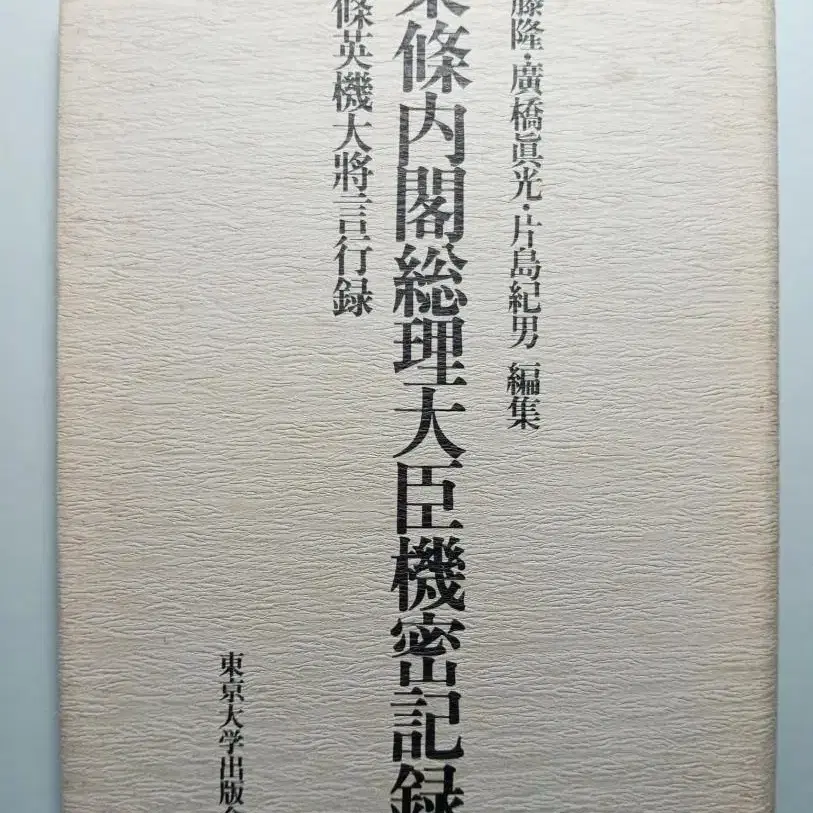 藤隆・廣橋眞光・片島紀男 編集
東條内閣総理大臣機密記録
條英機大將言行録
東京大学出版会